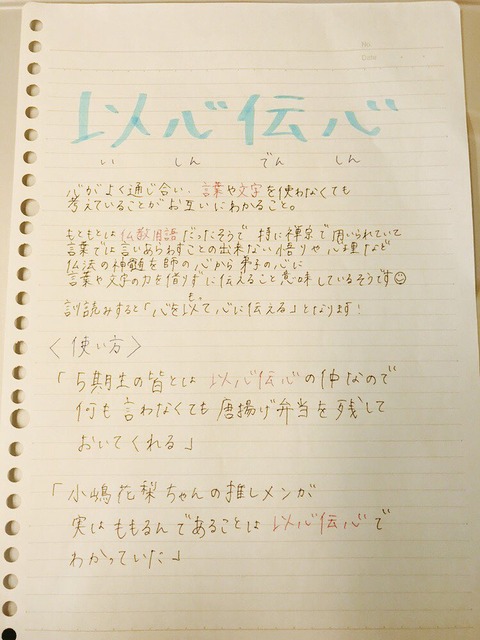 No.
Date
以心伝心
い しん でん しん
心がよく通じ合い、言葉や文字を使わなくても
考えていることがお互いにわかること。
もともとは仏教用語だったそうで 特に禅宗で用いられていて
言葉では言いあらわすことの出来ない悟りや心理など
仏法の神髄を師の心から弟子の心に
言葉や文字の力を借りずに伝えること意味しているそうです☺
訓読みすると「心を以て心に伝える」となります!
も
〈使い方〉
「5期生の皆とは 以心伝心の仲なので
何も言わなくても唐揚げ弁当を残して
おいてくれる」
「小嶋花梨ちゃんの推しメンが
実はももるんであることは以心伝心で
わかっていた」